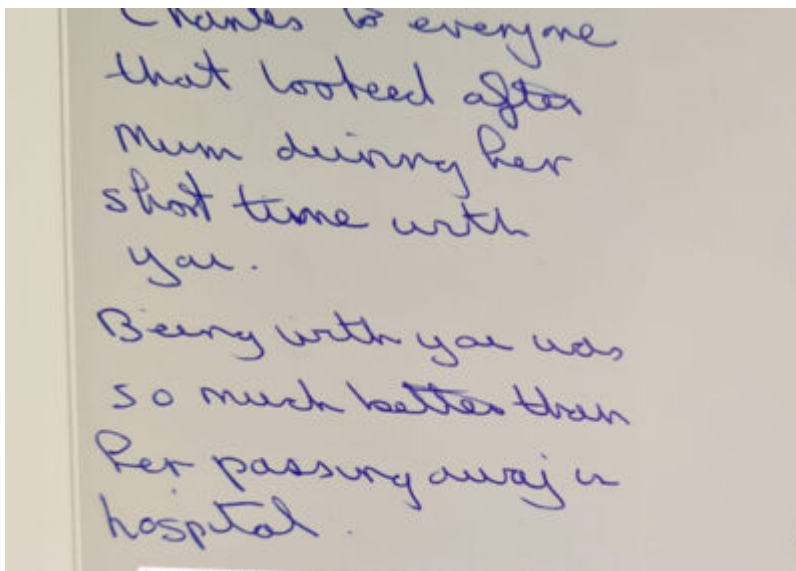 Thanks to everyone
that looked after
Mum during her
short time with
you.
Being with you was
so much better than
her passing away in
hospital.